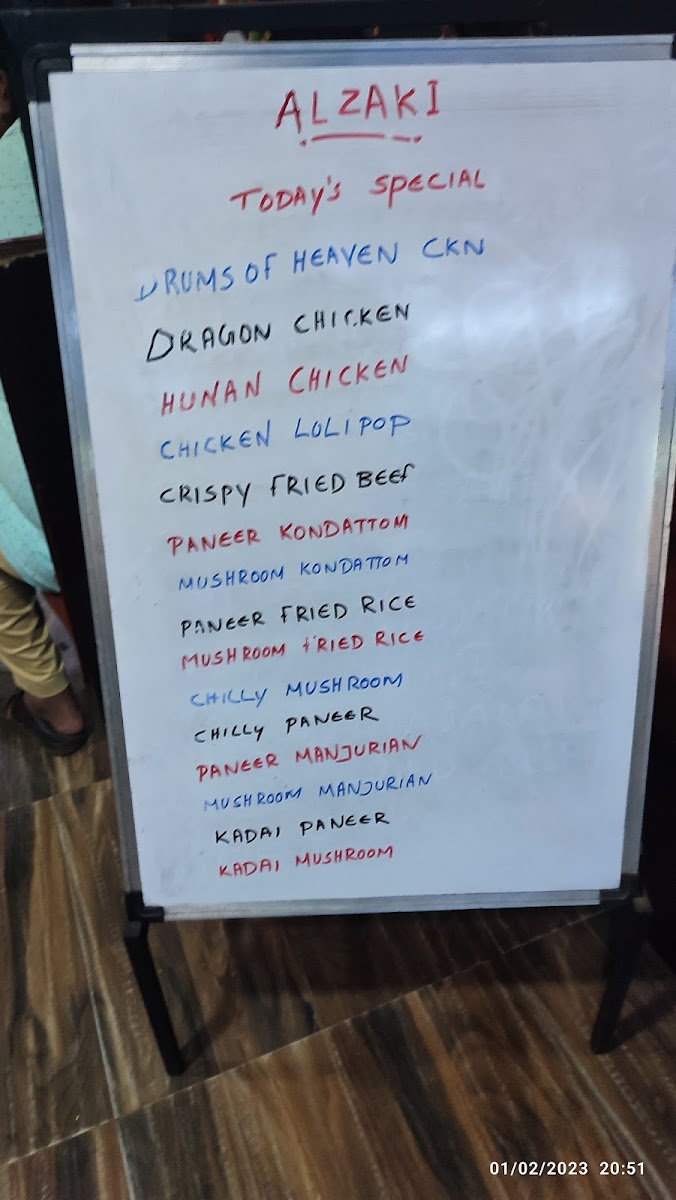 ALZAKI
TODAY'S SPECIAL
DRUMS OF HEAVEN CKN
DRAGON CHICKEN
HUNAN CHICKEN
CHICKEN LOLIPOP
CRISPY FRIED BEEF
PANEER KONDATTOM
MUSHROOM KONDATTOM
PANEER FRIED RICE
MUSHROOM FRIED RICE
CHILLY MUSHROOM
CHILLY PANEER
PANEER MANJURIAN
MUSHROOM MANJURIAN
KADAI PANEER
KADAI MUSHROOM
01/02/2023 20:51